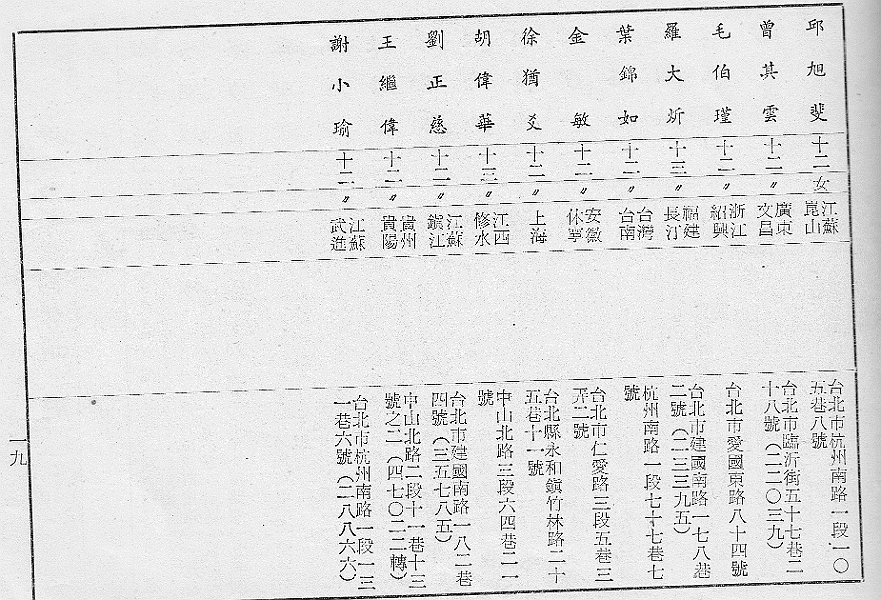 邱旭斐 十二 女 江蘇崑山 台北市杭州南路一段一〇五巷八號
曾其雲 十二 〃 廣東文昌 台北市臨沂街五十七巷二十八號（二二〇三九）
毛伯瑾 十二 〃 浙江紹興 台北市愛國東路八十四號
羅大炘 十三 〃 福建長汀 台北市建國南路一七八巷二號（二三三九五）
葉錦如 十二 〃 台灣台南 杭州南路一段七十七巷七號
金敏 十二 〃 安徽休寧 台北市仁愛路三段五巷三弄二號
徐猶爻 十二 〃 上海 台北縣永和鎮竹林路二十五巷十一號
胡偉華 十三 〃 江西修水 中山北路三段六四巷二一號
劉正慈 十二 〃 江蘇鎭江 台北市建國南路一八二巷四號（三五七八五）
王繼偉 十二 〃 貴州貴陽 中山北路二段十一巷十三號之二（四七〇二二轉）
謝小瑜 十二 〃 江蘇武進 台北市杭州南路一段一三一巷六號（二八八六六）
一九